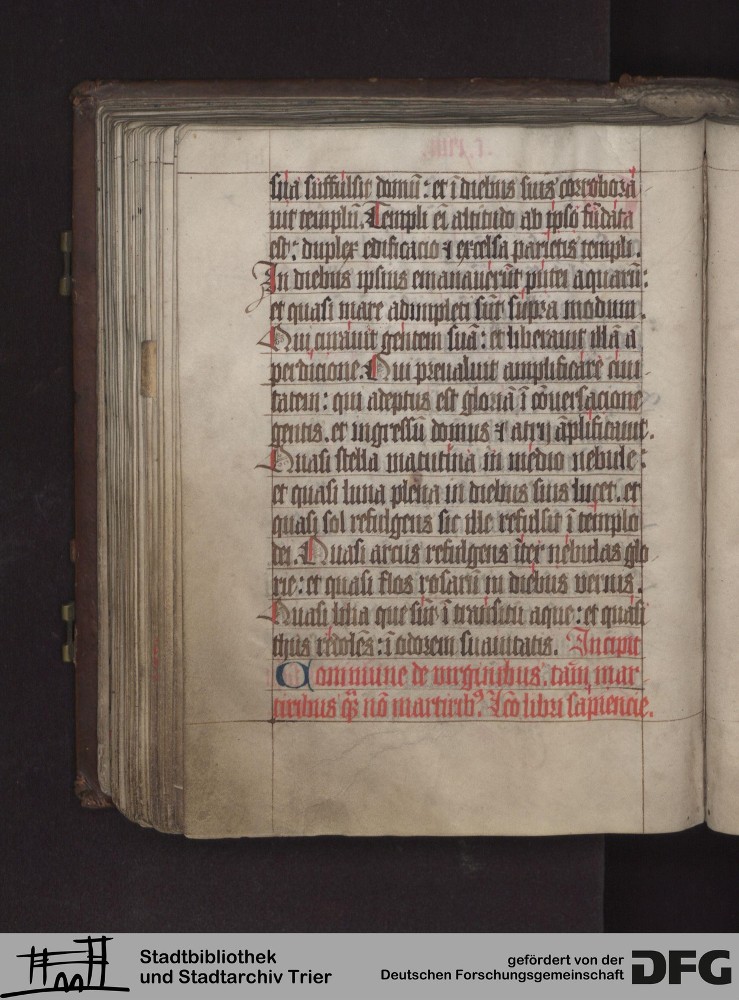 suā suffulsit domū : et ī diebus suis corrobora
uit templū. Templi eī altitudo ab ipso fūdata
est : duplex edificacio ⁊ excelsa parietis templi.
In diebus ipsius emanauerūt putei aquarū :
et quasi mare adimpleti sūt supra modum.
Qui curauit gentem suā : et liberauit illā a
perdicione. Qui preualuit amplificare ciui
tatem : qui adeptus est gloriā ī cōuersacione
gentis. et ingressū domus ⁊ atrij āplificauit.
Quasi stella matutina in medio nebule :
et quasi luna plena in diebus suis lucet. et
quasi sol refulgens sic ille refulsit ī templo
dei. Quasi arcus refulgens īter nebulas glo
rie : et quasi flos rosarū in diebus vernis.
Quasi lilia que sūt ī transitu aque : et quasi
thus redolēs : ī odorem suauitatis. Incipit
Commune de virginibus. tām mar
tiribus qͣ nō martiribꝰ. Lc̄o libri sapiencie.
Stadtbibliothek
und Stadtarchiv Trier
gefördert von der
Deutschen Forschungsgemeinschaft
DFG